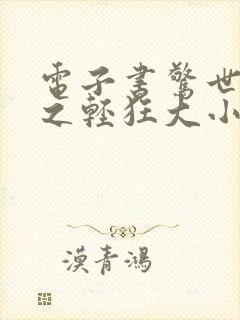 電子書驚世
之輕狂大小
漠青鴻